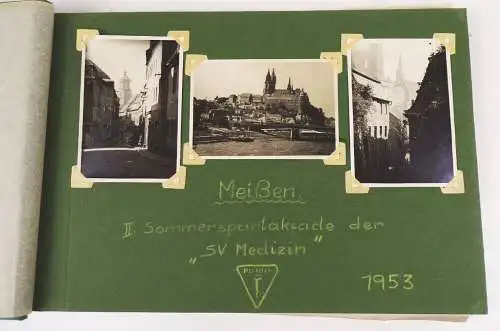 Meißen
II. Sommerspartakiade der
„SV Medizin"
1953